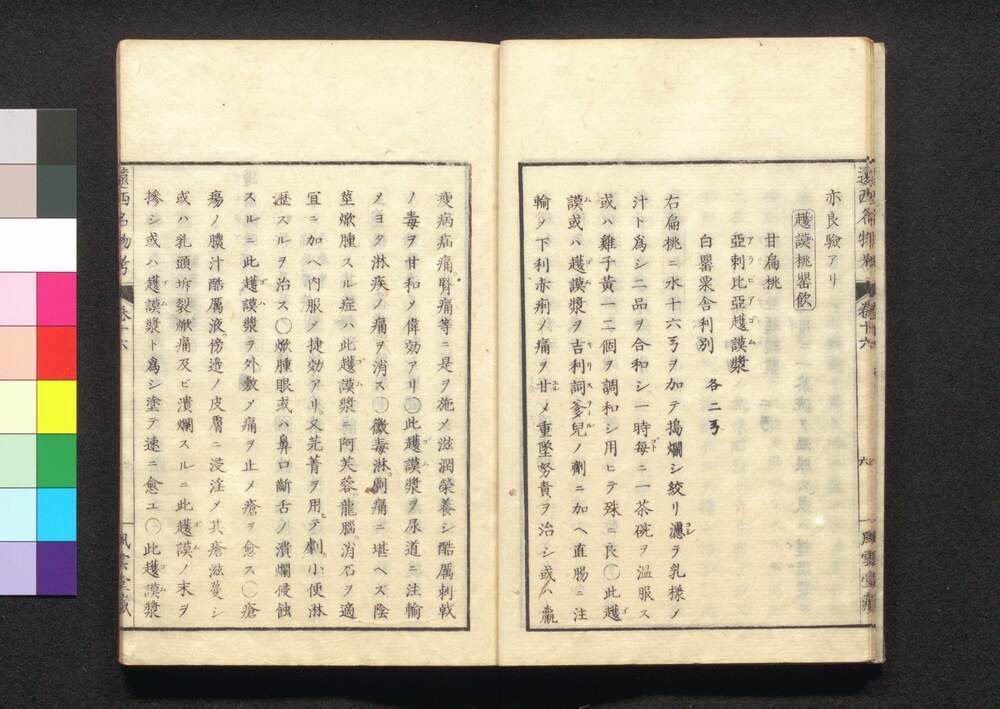 亦良驗アリ
越謨桃罌飲
甘扁桃
亞剌比亞越謨漿
アラビアゴム
白罌粟舎利別
各二弓
右扁桃ニ水十六弓ヲ加テ搗爛シ絞リ濾ラ乳様ノ
汁ト爲シ二品ヲ合和シ一時毎ニ一茶碗ヲ温服ス
或ハ雞子黄一二個ヲ調和シ用ヒテ殊ニ良〇此越
謨或ハ越謨漿ヲ吉利詞爹兒ノ劑ニ加ヘ直腸ニ注
輸メ下利赤痢ノ痛ヲ甘メ重墜努責ヲ治シ或ハ羸
六
風雲堂藏
痩病疝痛腎痛等ニ是ヲ施メ滋潤榮養シ酷厲刺戟
ノ毒ヲ甘和メ偉効アリ〇此越謨漿ヲ尿道ニ注輸
メヨク淋疾ノ痛ヲ消ス〇黴毒淋劇痛ニ堪ヘズ陰
莖焮腫スル症ハ此越謨漿ニ阿芙蓉龍腦消石ヲ適
宜ニ加ヘ内服メ捷効アリ又芫菁ヲ用テ劇ク小便淋
瀝スルヲ治ス〇焮腫眼或ハ鼻口齗舌ノ潰爛侵蝕
スルニ此越謨漿ヲ外敷メ痛ヲ止メ瘡ヲ愈ス〇瘡
瘍ノ膿汁酷厲液傍邉ノ皮膚ニ浸淫メ其瘡滋蔓シ
或ハ乳頭坼裂焮痛及ビ潰爛スルニ此越謨ノ末ヲ
摻シ或ハ越謨漿ト爲シ塗テ速ニ愈ユ〇此越謨漿
遠西名物考
卷十六
風雲堂藏